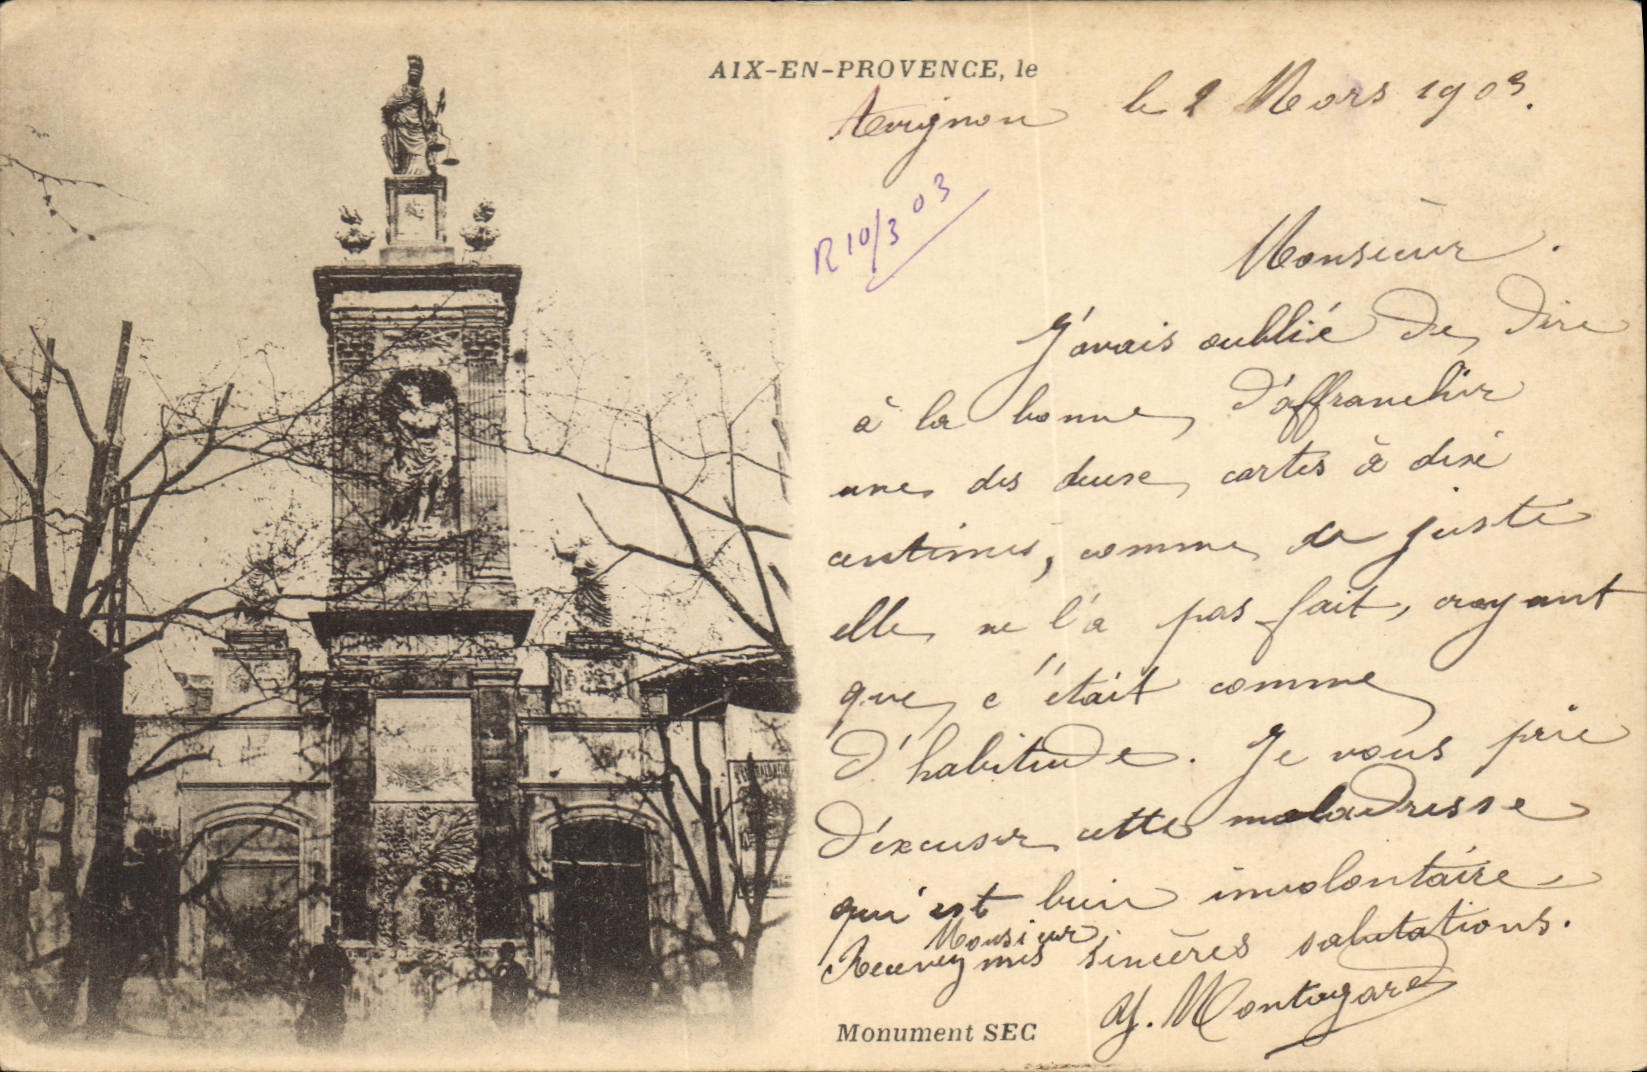 AIX-EN-PROVENCE, le
Avignon le 2 Mars 1903.
R 10/3 03
Monsieur.
J'avais oublié de dire
à la bonne d'affranchir
une des deux cartes à dix
centimes, comme de juste
elle ne l'a pas fait, croyant
que c'était comme
d'habitude. Je vous prie
d'excuser cette maladresse
qui est bien involontaire
Monsieur
Recevez mes sincères salutations.
Monument SEC